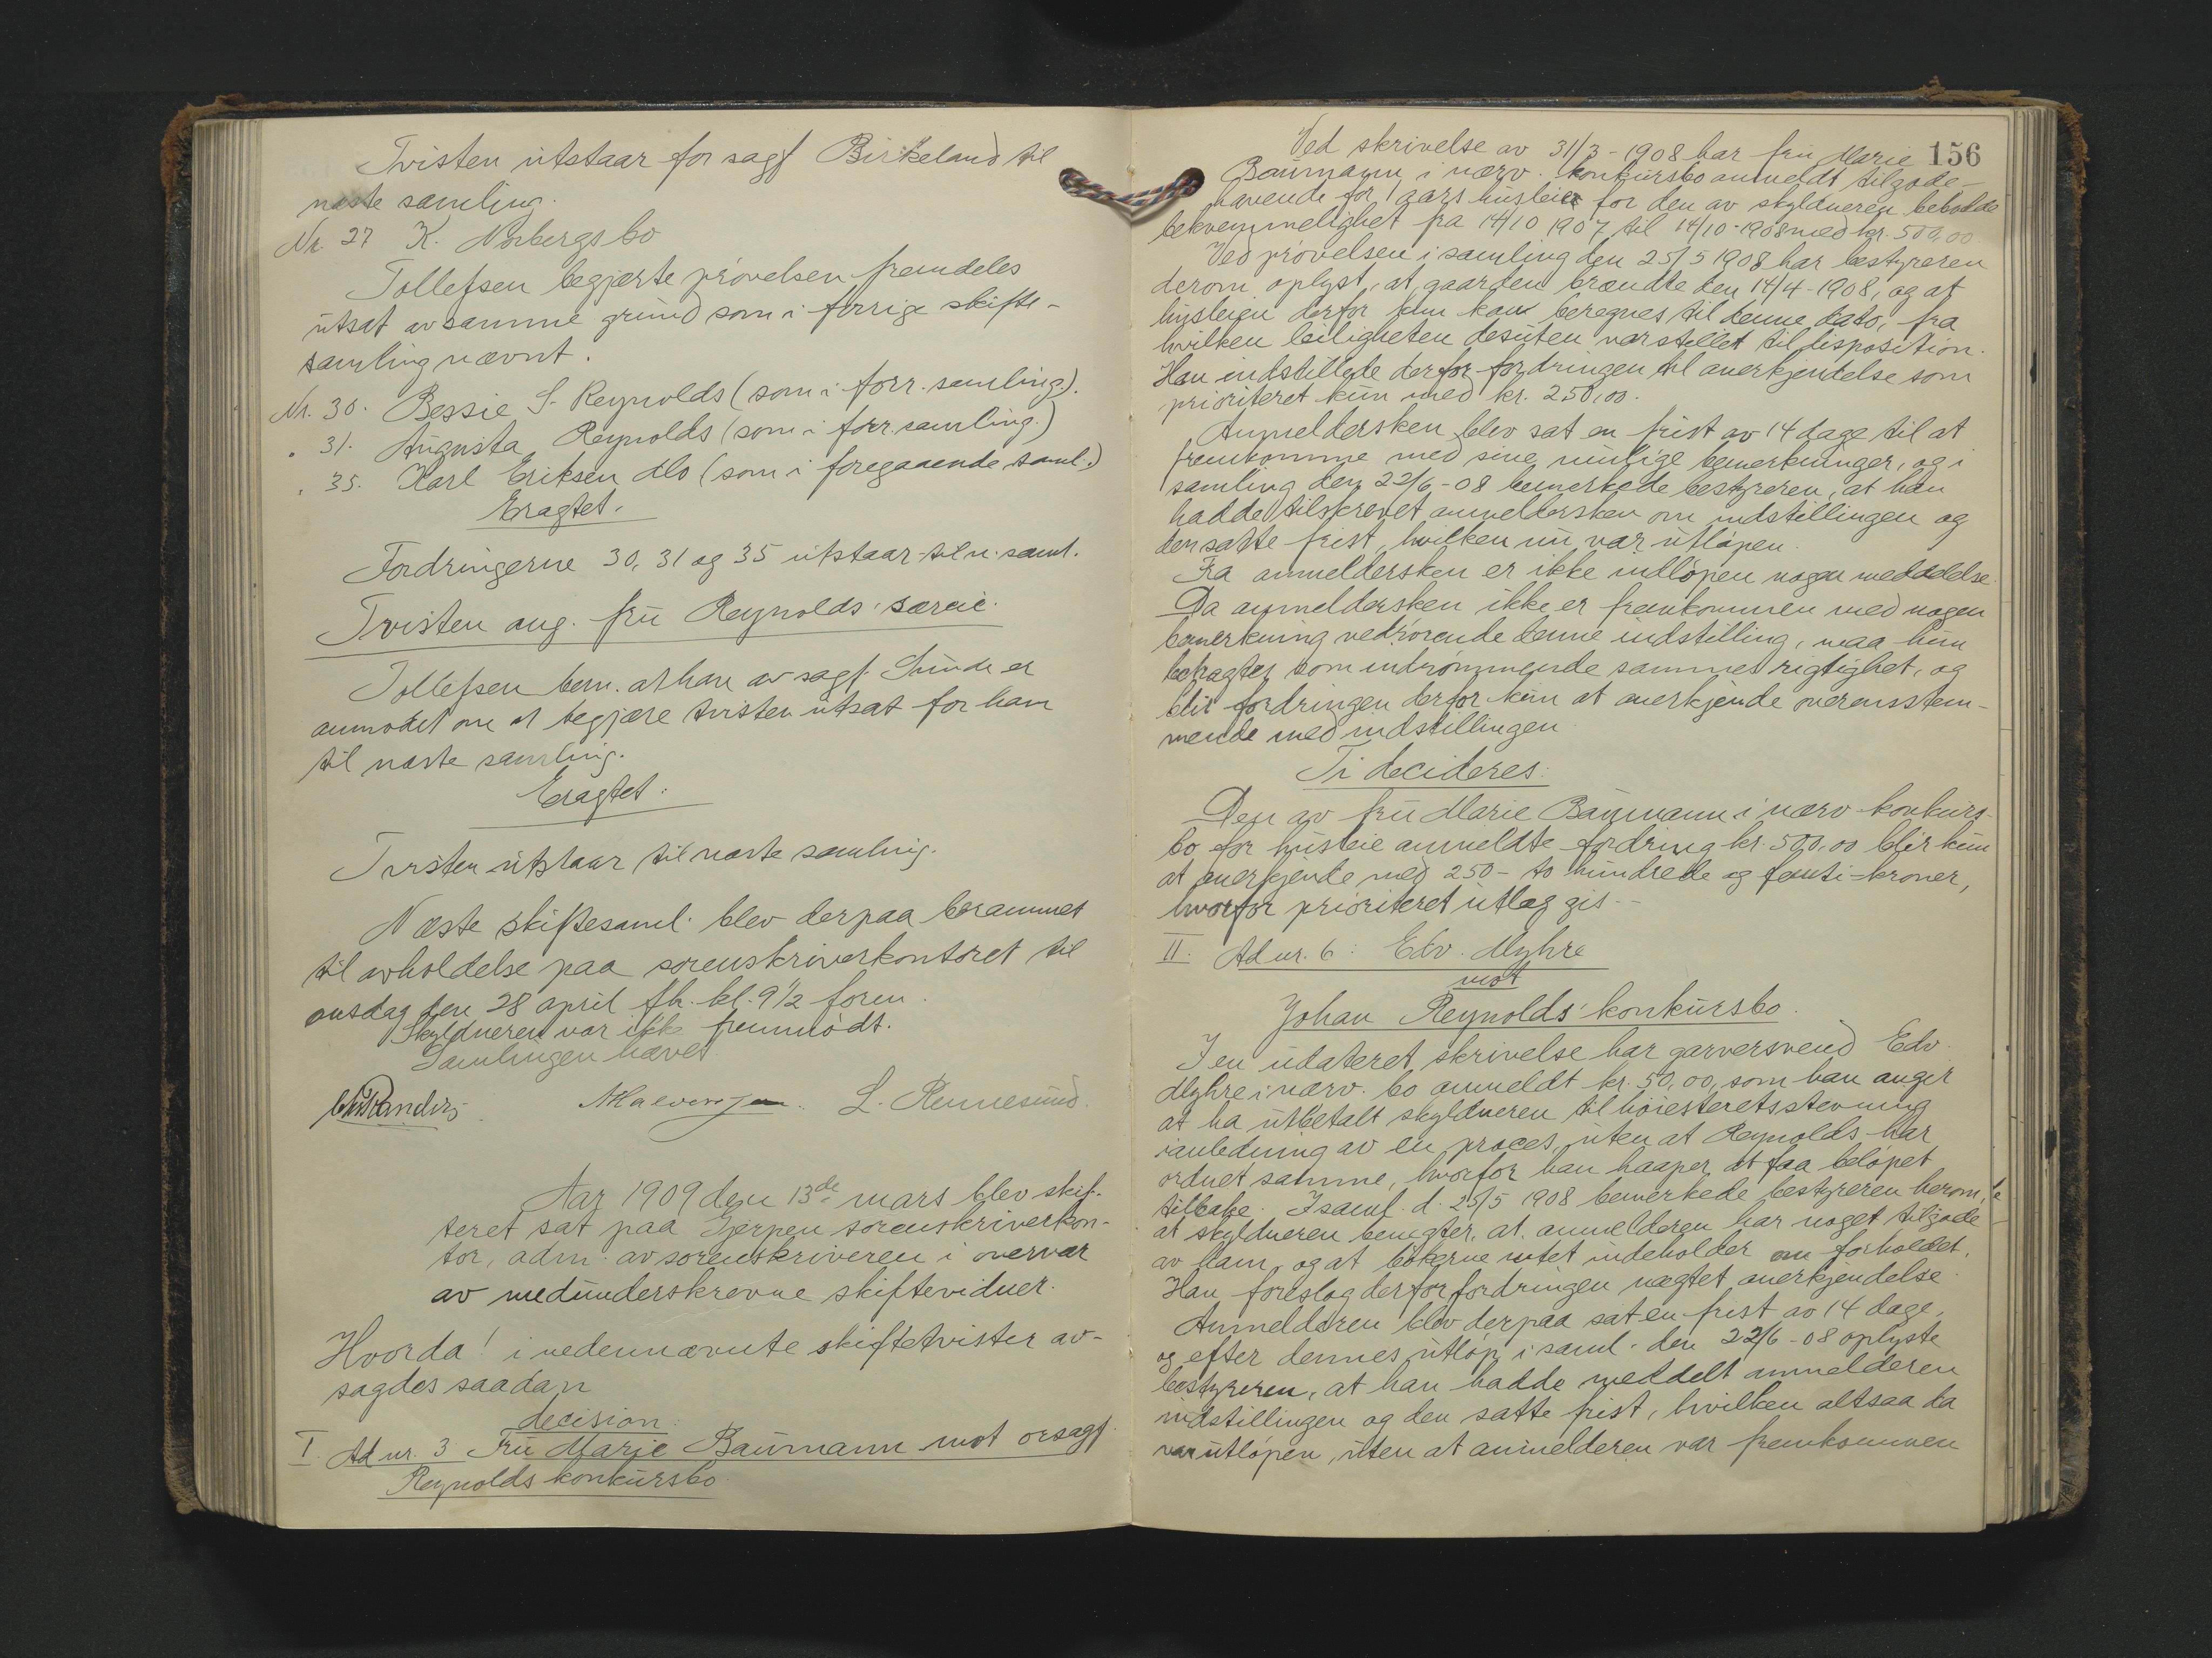 Tvisten utstaar for sagf Birkeland til
næste samling.
Nr. 27 K. Norbergs bo
Tollefsen begjærte prøvelsen fremdeles
utsat av samme grund som i forrige skifte-
samling nævnt.
Nr. 30. Bessie S. Reynolds (som i forr. samling.).
" 31. Augusta Reynolds (som i forr. samling.)
" 35. Karl Eriksen Mo (som i foregaaende saml.)
Eragtet.
Fordringerne 30, 31 og 35 utstaar til n. saml.
Tvisten ang. fru Reynolds særeie.
Tollefsen bem. at han av sagf. Sunde er
anmodet om at begjære tvisten utsat for ham
til næste samling.
Eragtet:
Tvisten utstaar til næste samling.
Næste skiftesaml. blev derpaa berammet
til avholdelse paa sorenskriverkontoret til
onsdag den 28 april fh. kl. 9 1/2 form.
Skyldneren var ikke fremmødt.
Samlingen hævet
L. Rennesund.
Aar 1909 den 13de mars blev skif-
teret sat paa Gjerpen sorenskriverkon-
tor, adm. av sorenskriveren i overvær
av medunderskrevne skiftevidner.
Hvorda! i nedennævnte skiftetvister av-
sagdes saadan
decision:
I. Ad nr. 3 Fru Marie Baumann mot orsagf.
Reynolds konkursbo.
156
Ved skrivelse av 31/3-1908 har fru Marie
Baumann i nærv. konkursbo anmeldt tilgode-
havende for 1 aars husleie for den av skyldneren bebodde
bekvemmelighet fra 14/10 1907 til 14/10-1908 med kr. 500,00
Ved prøvelsen i samling den 25/5 1908 har bestyreren
derom oplyst, at gaarden brændte den 14/4-1908, og at
husleien derfor kun kan beregnes til denne dato, fra
hvilken leiligheten desuten var stillet til disposition.
Han indstillede derfor fordringen til anerkjendelse som
prioriteret kun med kr. 250,00.
Anmeldersken blev sat en frist av 14 dage til at
fremkomme med sine mulige bemerkninger, og i
samling den 22/6-08 bemerkede bestyreren, at han
hadde tilskrevet anmeldersken om indstillingen og
den satte frist, hvilken nu var utløpen.
Fra anmeldersken er ikke indløpen nogen meddelelse.
Da anmeldersken ikke er fremkommen med nogen
bemerkning vedrørende denne indstilling, maa hun
betragtes som indrømmende sammes rigtighet, og
blir fordringen derfor kun at anerkjende overensstem-
mende med indstillingen
Ti decideres:
Den av fru Marie Baumann i nærv konkurs-
bo for husleie anmeldte fordring kr. 500,00 blir kun
at anerkjende med 250 – to hundrede og femti – kroner,
hvorfor prioriteret utlæg gis. –
II. Ad nr. 6: Edv. Myhre
mot
Johan Reynolds' konkursbo.
I en udateret skrivelse har garversvend Edv.
Myhre i nærv. bo anmeldt kr. 50,00, som han angir
at ha utbetalt skyldneren til høiesteretsstevning
i anledning av en proces, uten at Reynolds har
ordnet samme, hvorfor han haaper at faa beløpet
tilbake. I saml. d. 25/5 1908 bemerkede bestyreren herom,
at skyldneren benegter, at anmelderen har noget tilgode
av ham, og at bøkerne intet indeholder om forholdet.
Han foreslog derfor fordringen nægtet anerkjendelse.
Anmelderen blev derpaa sat en frist av 14 dage,
og efter dennes utløp i saml. den 22/6-08 oplyste
bestyreren, at han hadde meddelt anmelderen
indstillingen og den satte frist, hvilken altsaa da
var utløpen, uten at anmelderen var fremkommen